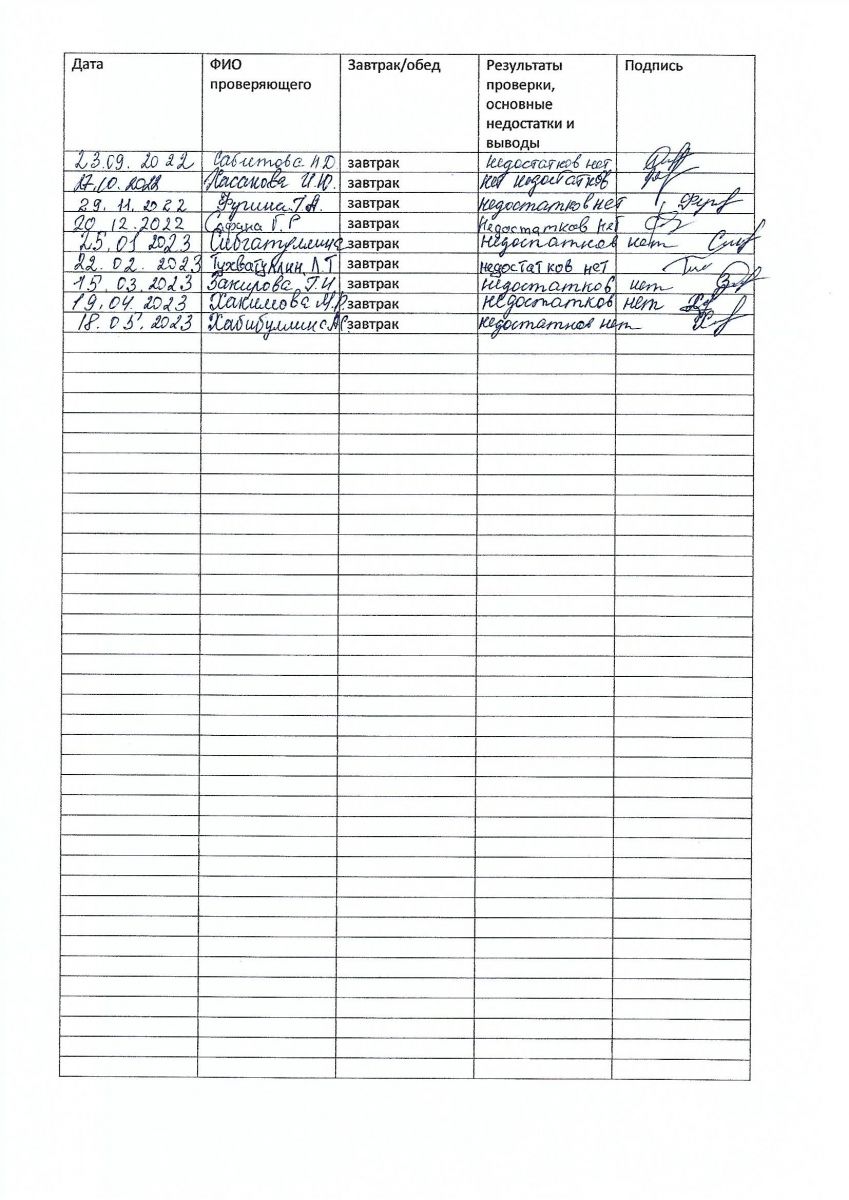 Дата ФИО проверяющего Завтрак/обед Результаты проверки, основные недостатки и выводы Подпись
23.09.2022 Сабитова завтрак недостатков нет
17.10.2022 Хасанова И.Ю. завтрак нет недостатков
29.11.2022 Г.А. завтрак недостатков нет
20.12.2022 Г.Р завтрак недостатков нет
25.01 2023 Сибгатуллина завтрак недостатков нет
22.02.2023 Тухватуллин Л.Т завтрак недостатков нет
15.03.2023 Закирова Г.И завтрак недостатков нет
19.04 2023 Хакимова М.Р. завтрак недостатков нет
18.05.2023 Хабибуллина завтрак недостатков нет